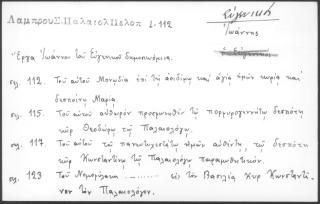 Λαμπρου Σ. Παλαιολ Πελοπ 1.112
Εὐγενικὸς
Ἰωάννης
Ἔργα Ἰωάννου τοῦ Εὐγενικοῦ δημοσιευόμενα.
σελ. 112. Τοῦ αὐτοῦ Μονῳδία ἐπὶ τῇ ἀοιδίμῳ καὶ ἁγίᾳ ἡμῶν κυρίᾳ καὶ
δεσποίνῃ Μαρίᾳ.
σελ. 115. Τοῦ αὐτοῦ αὐθωρὸν προσρηθὲν τῷ πορφυρογεννήτῳ δεσπότῃ
κῦρ Θεοδώρῳ τῷ Παλαιολόγῳ.
σελ. 117. Τοῦ αὐτοῦ τῷ πανευτυχεστάτῳ ἡμῶν αὐθέντῃ, τῷ δεσπότῃ
κῦρ Κωνσταντίνῳ τῷ Παλαιολόγῳ παραμυθητικόν.
σελ. 123 Τοῦ Νομοφύλακος ........ εἰς τὸν Βασιλέα Κῦρ Κωνσταντῖ-
νον τὸν Παλαιολόγον.